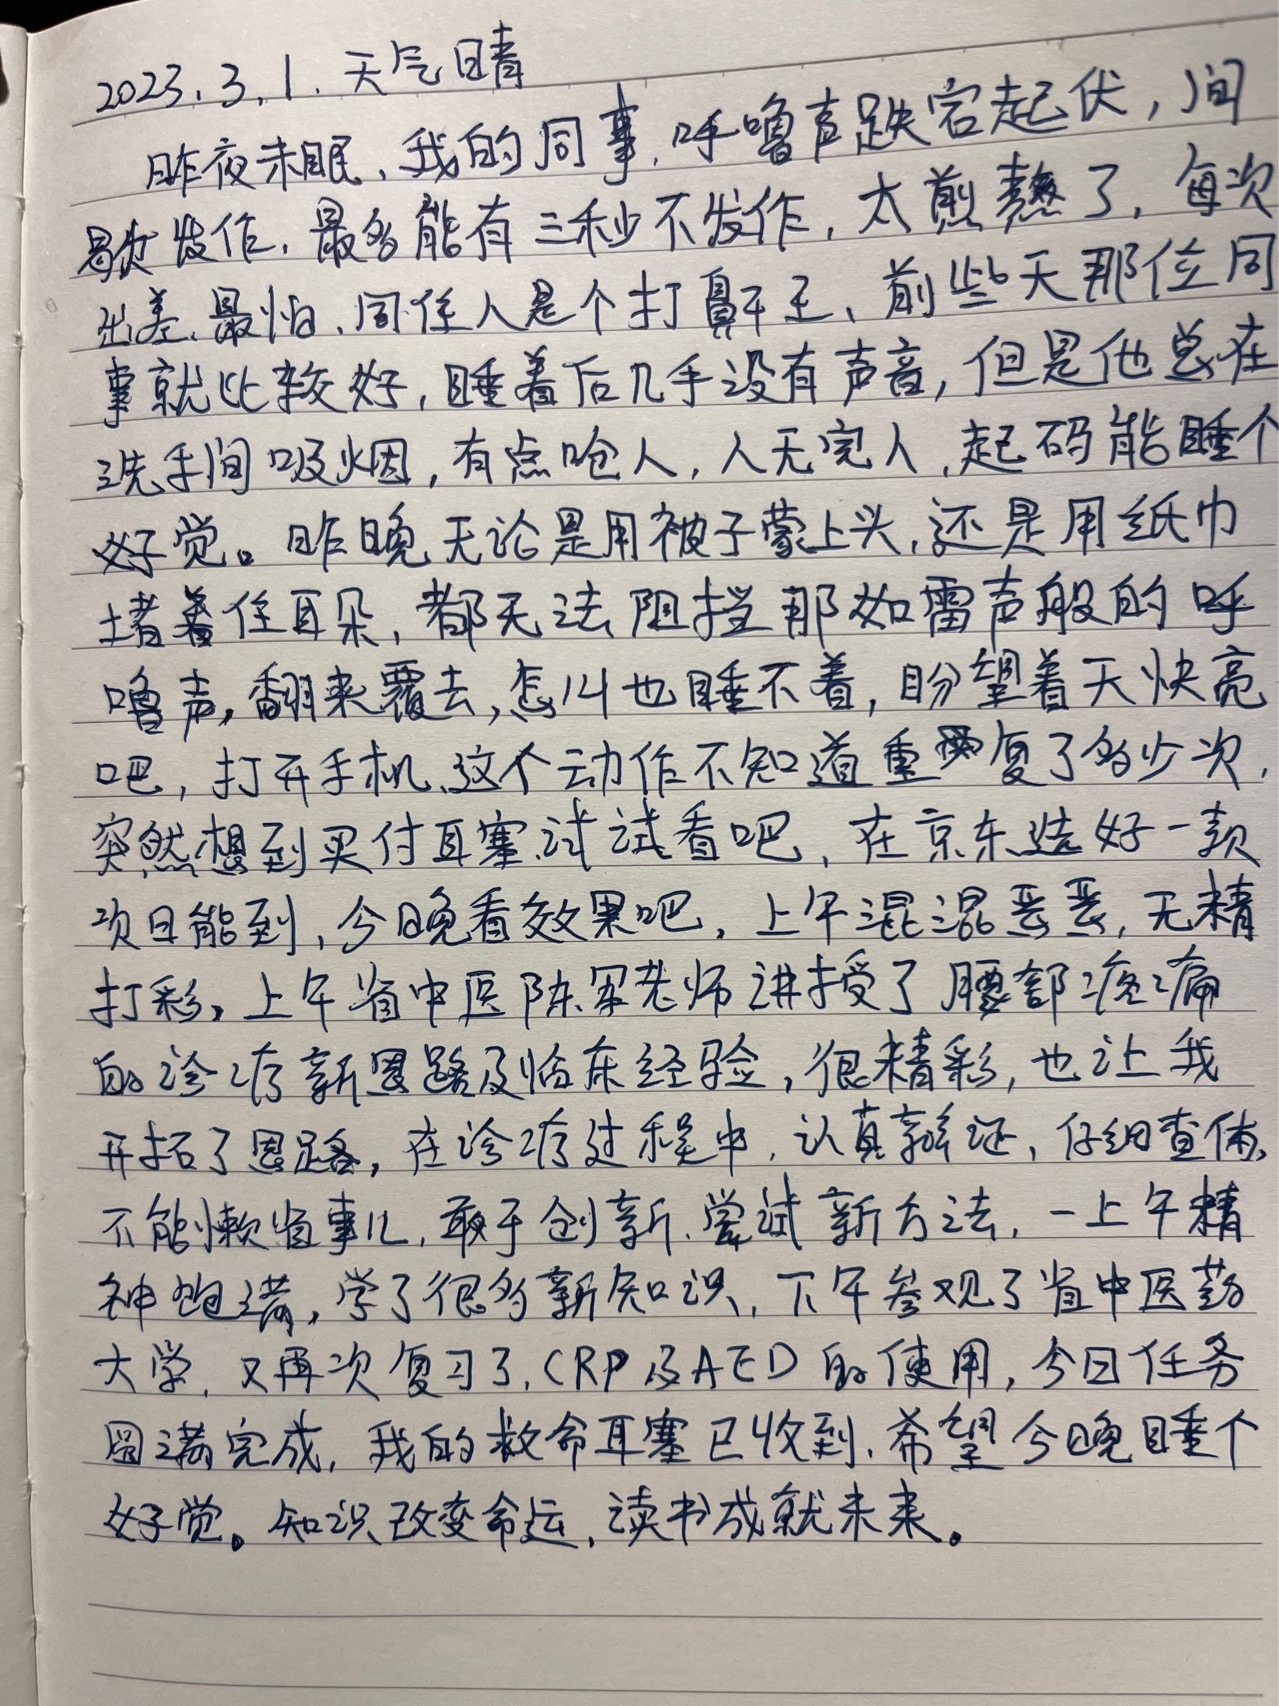 2023.3.1.天气晴
昨夜未眠,我的同事,呼噜声跌宕起伏,间
歇发作,最多能有三秒不发作,太煎熬了,每次
出差,最怕,同住人是个打鼾王、前些天那位同
事就比较好,睡着后几乎没有声音,但是他总在
洗手间吸烟,有点呛人,人无完人,起码能睡个
好觉。昨晚无论是用被子蒙上头,还是用纸巾
堵着住耳朵,都无法阻挡那如雷声般的呼
噜声,翻来覆去,怎么也睡不着,盼望着天快亮
吧,打开手机,这个动作不知道重复了多少次,
突然想到买付耳塞试试看吧,在京东选好一款
次日能到,今晚看效果吧,上午混混恶恶,无精
打彩,上午省中医陈军老师讲授了腰部疼痛
的诊疗新思路及临床经验,很精彩,也让我
开拓了思路,在诊疗过程中,认真辩证,仔细查体,
不能懒省事儿,敢于创新,尝试新方法,一上午精
神饱满,学了很多新知识,下午参观了省中医药
大学,又再次复习了,CRP及AED的使用,今日任务
圆满完成,我的救命耳塞已收到,希望今晚睡个
好觉。知识改变命运,读书成就未来。